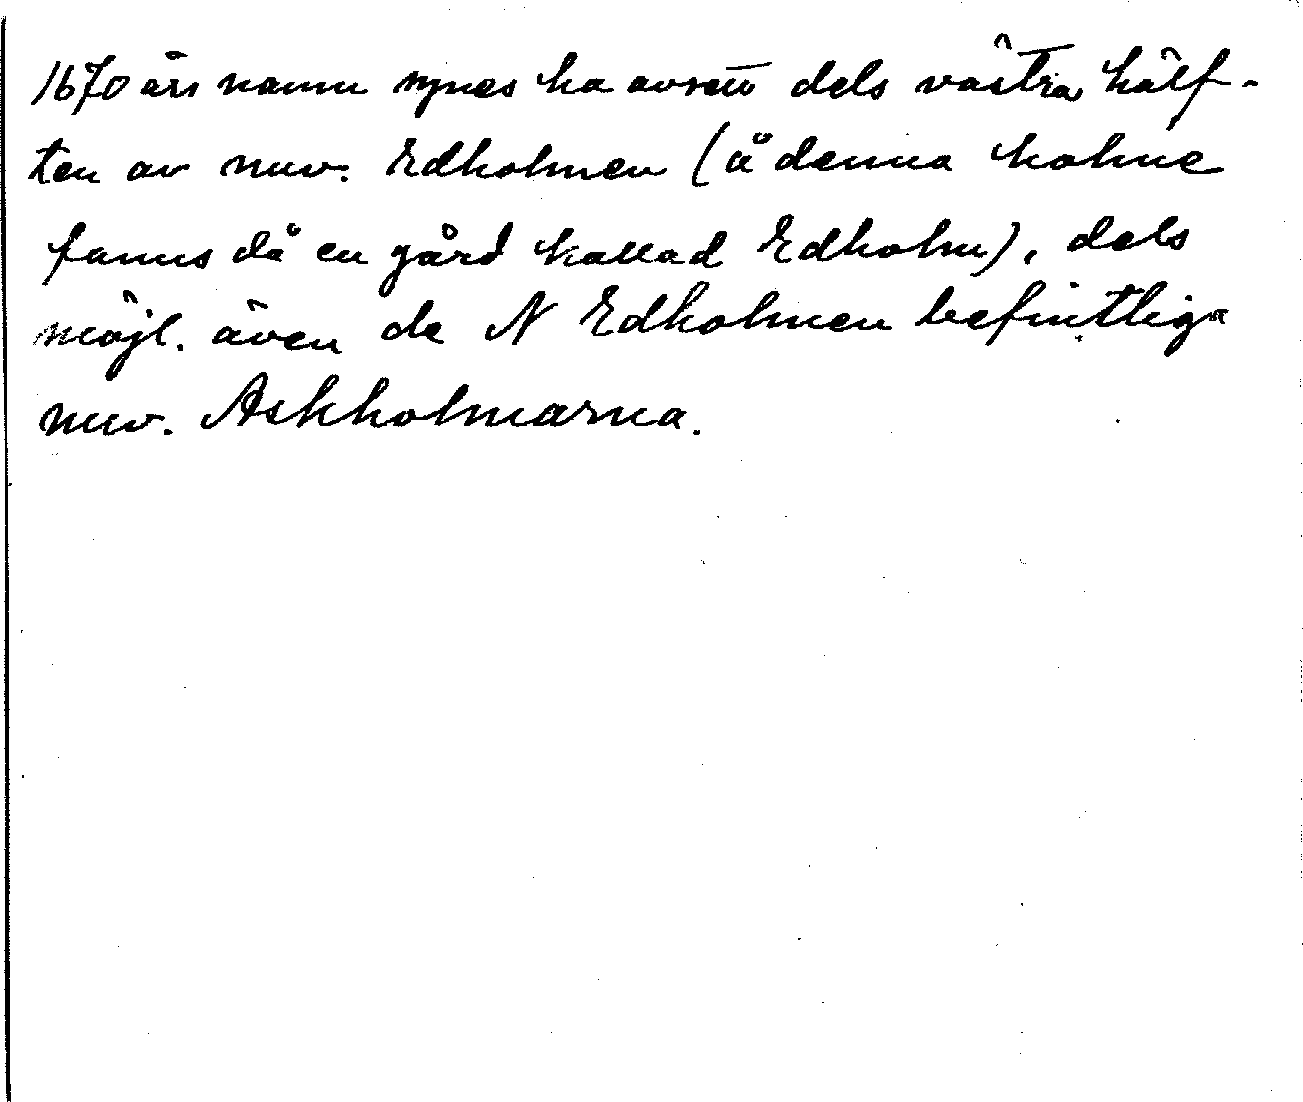 1670 års namn synes ha avsett dels västra hälf-
ten av nuv. Edholmen (å denna holme
fanns då en gård kallad Edholm), dels
möjl. även de N Edholmen befintliga
nuv. Askholmarna.